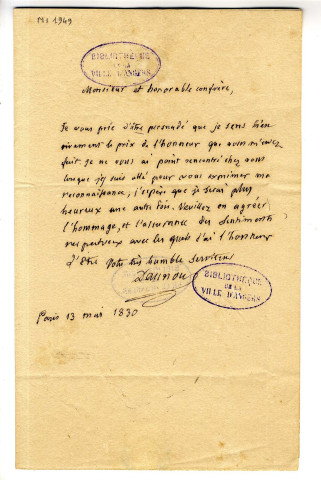 Ms 1949
BIBLIOTHÈQUE
DE LA
VILLE D'ANGERS
Monsieur et honorable confrère,
Je vous prie d'être persuadé que je sens bien
vivement le prix de l'honneur que vous m'avez
fait. Je ne vous ai point rencontré chez vous
lorsque j'y suis allé pour vous exprimer ma
reconnaissance, j'espère que je serai plus
heureux une autre fois. Veuillez en agréer
l'hommage, et l'assurance des sentiments
respectueux avec lesquels j'ai l'honneur
d'être Votre très humble serviteur
Daunou
BIBLIOTHÈQUE
DE LA
VILLE D'ANGERS
Paris 13 mai 1830